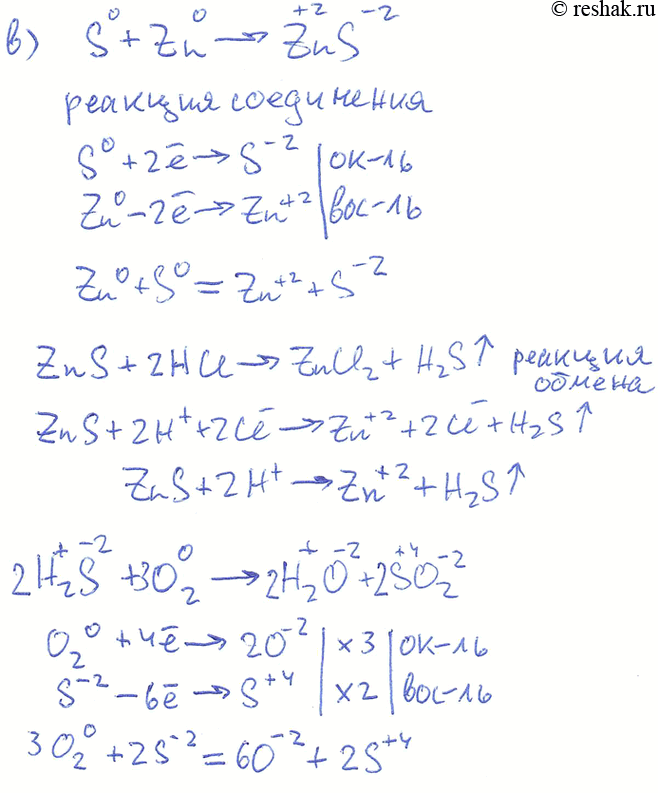 © reshak.ru
в) S⁰ + Zn⁰ → Zn⁺²S⁻²
реакция соединения
S⁰ + 2ē → S⁻² | ок-ль
Zn⁰ - 2ē → Zn⁺² | вос-ль
Zn⁰ + S⁰ = Zn⁺² + S⁻²
ZnS + 2HCl → ZnCl₂ + H₂S↑ реакция
обмена
ZnS + 2H⁺ + 2Cl⁻ → Zn⁺² + 2Cl⁻ + H₂S↑
ZnS + 2H⁺ → Zn⁺² + H₂S↑
2H₂⁺S⁻² + 3O₂⁰ → 2H₂⁺O⁻² + 2S⁺⁴O₂⁻²
O₂⁰ + 4ē → 2O⁻² | ×3 | ок-ль
S⁻² - 6ē → S⁺⁴ | ×2 | вос-ль
3O₂⁰ + 2S⁻² = 6O⁻² + 2S⁺⁴